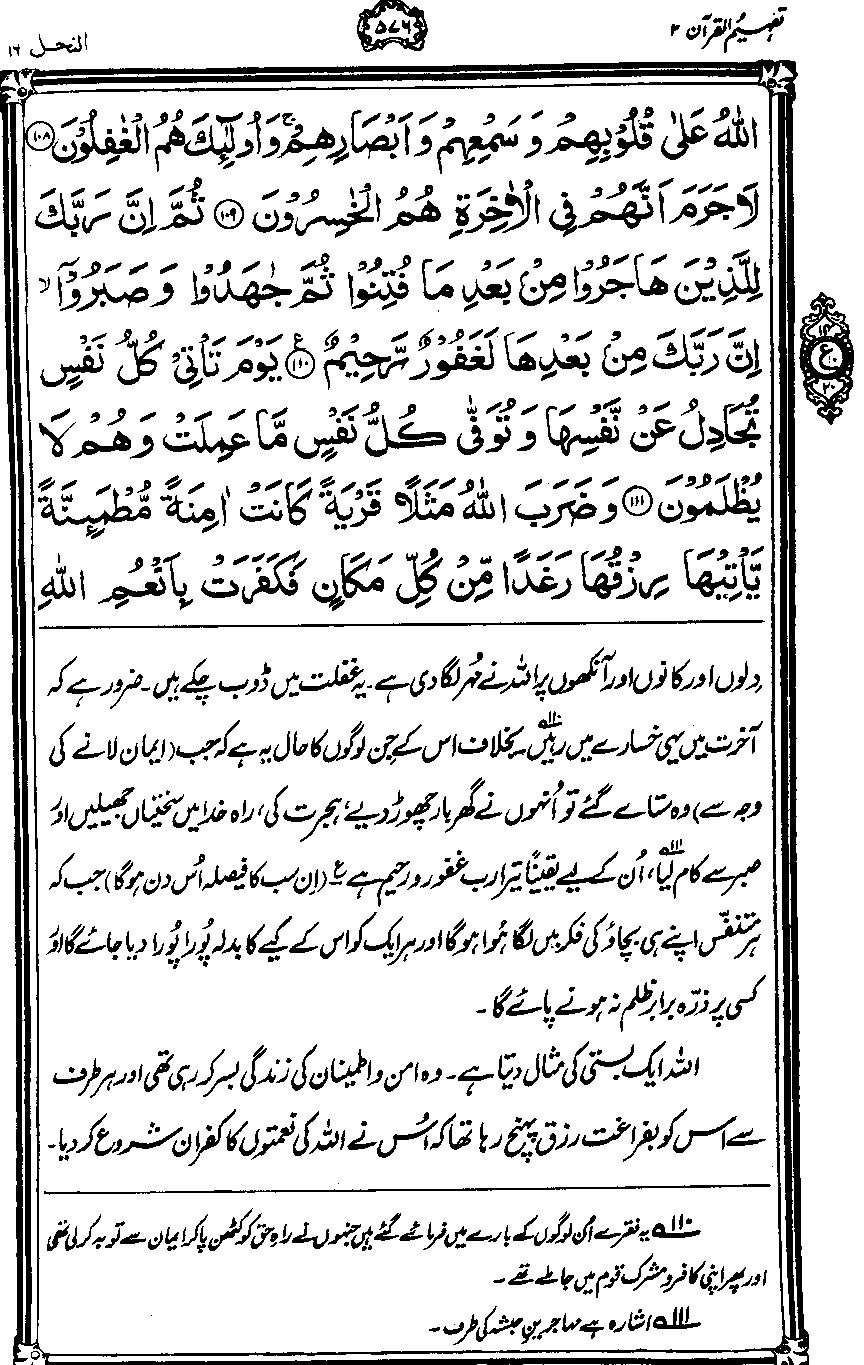 تفہیم القرآن ۲
۵۷۶
النحل ۱۶
اللّٰهُ عَلٰى قُلُوْبِهِمْ وَ سَمْعِهِمْ وَ اَبْصَارِهِمْ ۚ وَ اُولٰٓئِكَ هُمُ الْغٰفِلُوْنَ ۝۱۰۸
لَا جَرَمَ اَنَّهُمْ فِی الْاٰخِرَةِ هُمُ الْخٰسِرُوْنَ ۝۱۰۹ ثُمَّ اِنَّ رَبَّكَ
لِلَّذِیْنَ هَاجَرُوْا مِنْۢ بَعْدِ مَا فُتِنُوْا ثُمَّ جٰهَدُوْا وَ صَبَرُوْۤا ۙ
اِنَّ رَبَّكَ مِنْۢ بَعْدِهَا لَغَفُوْرٌ رَّحِیْمٌ ۝۱۱۰ ع یَوْمَ تَاْتِیْ كُلُّ نَفْسٍ
تُجَادِلُ عَنْ نَّفْسِهَا وَ تُوَفّٰى كُلُّ نَفْسٍ مَّا عَمِلَتْ وَ هُمْ لَا
یُظْلَمُوْنَ ۝۱۱۱ وَ ضَرَبَ اللّٰهُ مَثَلًا قَرْیَةً كَانَتْ اٰمِنَةً مُّطْمَىِٕنَّةً
یَّاْتِیْهَا رِزْقُهَا رَغَدًا مِّنْ كُلِّ مَكَانٍ فَكَفَرَتْ بِاَنْعُمِ اللّٰهِ
ع
دِلوں اور کانوں اور آنکھوں پر اللہ نے مُہر لگا دی ہے۔ یہ غفلت میں ڈوب چکے ہیں۔ ضرور ہے کہ
آخرت میں یہی خسارے میں رہیں۱۱۰۔ بخلاف اس کے جن لوگوں کا حال یہ ہے کہ جب (ایمان لانے کی
وجہ سے) وہ ستائے گئے تو اُنہوں نے گھر بار چھوڑ دیے، ہجرت کی، راہ خدا میں سختیاں جھیلیں اور
صبر سے کام لیا۱۱۱، اُن کے لیے یقیناً تیرا رب غفور و رحیم ہے ع (اِن سب کا فیصلہ اُس دن ہوگا) جب کہ
ہر متنفّس اپنے ہی بچاؤ کی فکر میں لگا ہُوا ہوگا اور ہر ایک کو اس کے کیے کا بدلہ پُورا پُورا دیا جائے گا اور
کسی پر ذرّہ برابر ظلم نہ ہونے پائے گا۔
اللہ ایک بستی کی مثال دیتا ہے۔ وہ امن و اطمینان کی زندگی بسر کر رہی تھی اور ہر طرف
سے اس کو بفراغت رزق پہنچ رہا تھا کہ اُس نے اللہ کی نعمتوں کا کفران شروع کر دیا۔
۱۱۰ یہ فقرے اُن لوگوں کے بارے میں فرمائے گئے ہیں جنہوں نے راہِ حق کو کٹھن پا کر ایمان سے توبہ کر لی تھی
اور پھر اپنی کافر و مشرک قوم میں جا ملے تھے۔
۱۱۱ اشارہ ہے مہاجرینِ حبشہ کی طرف۔